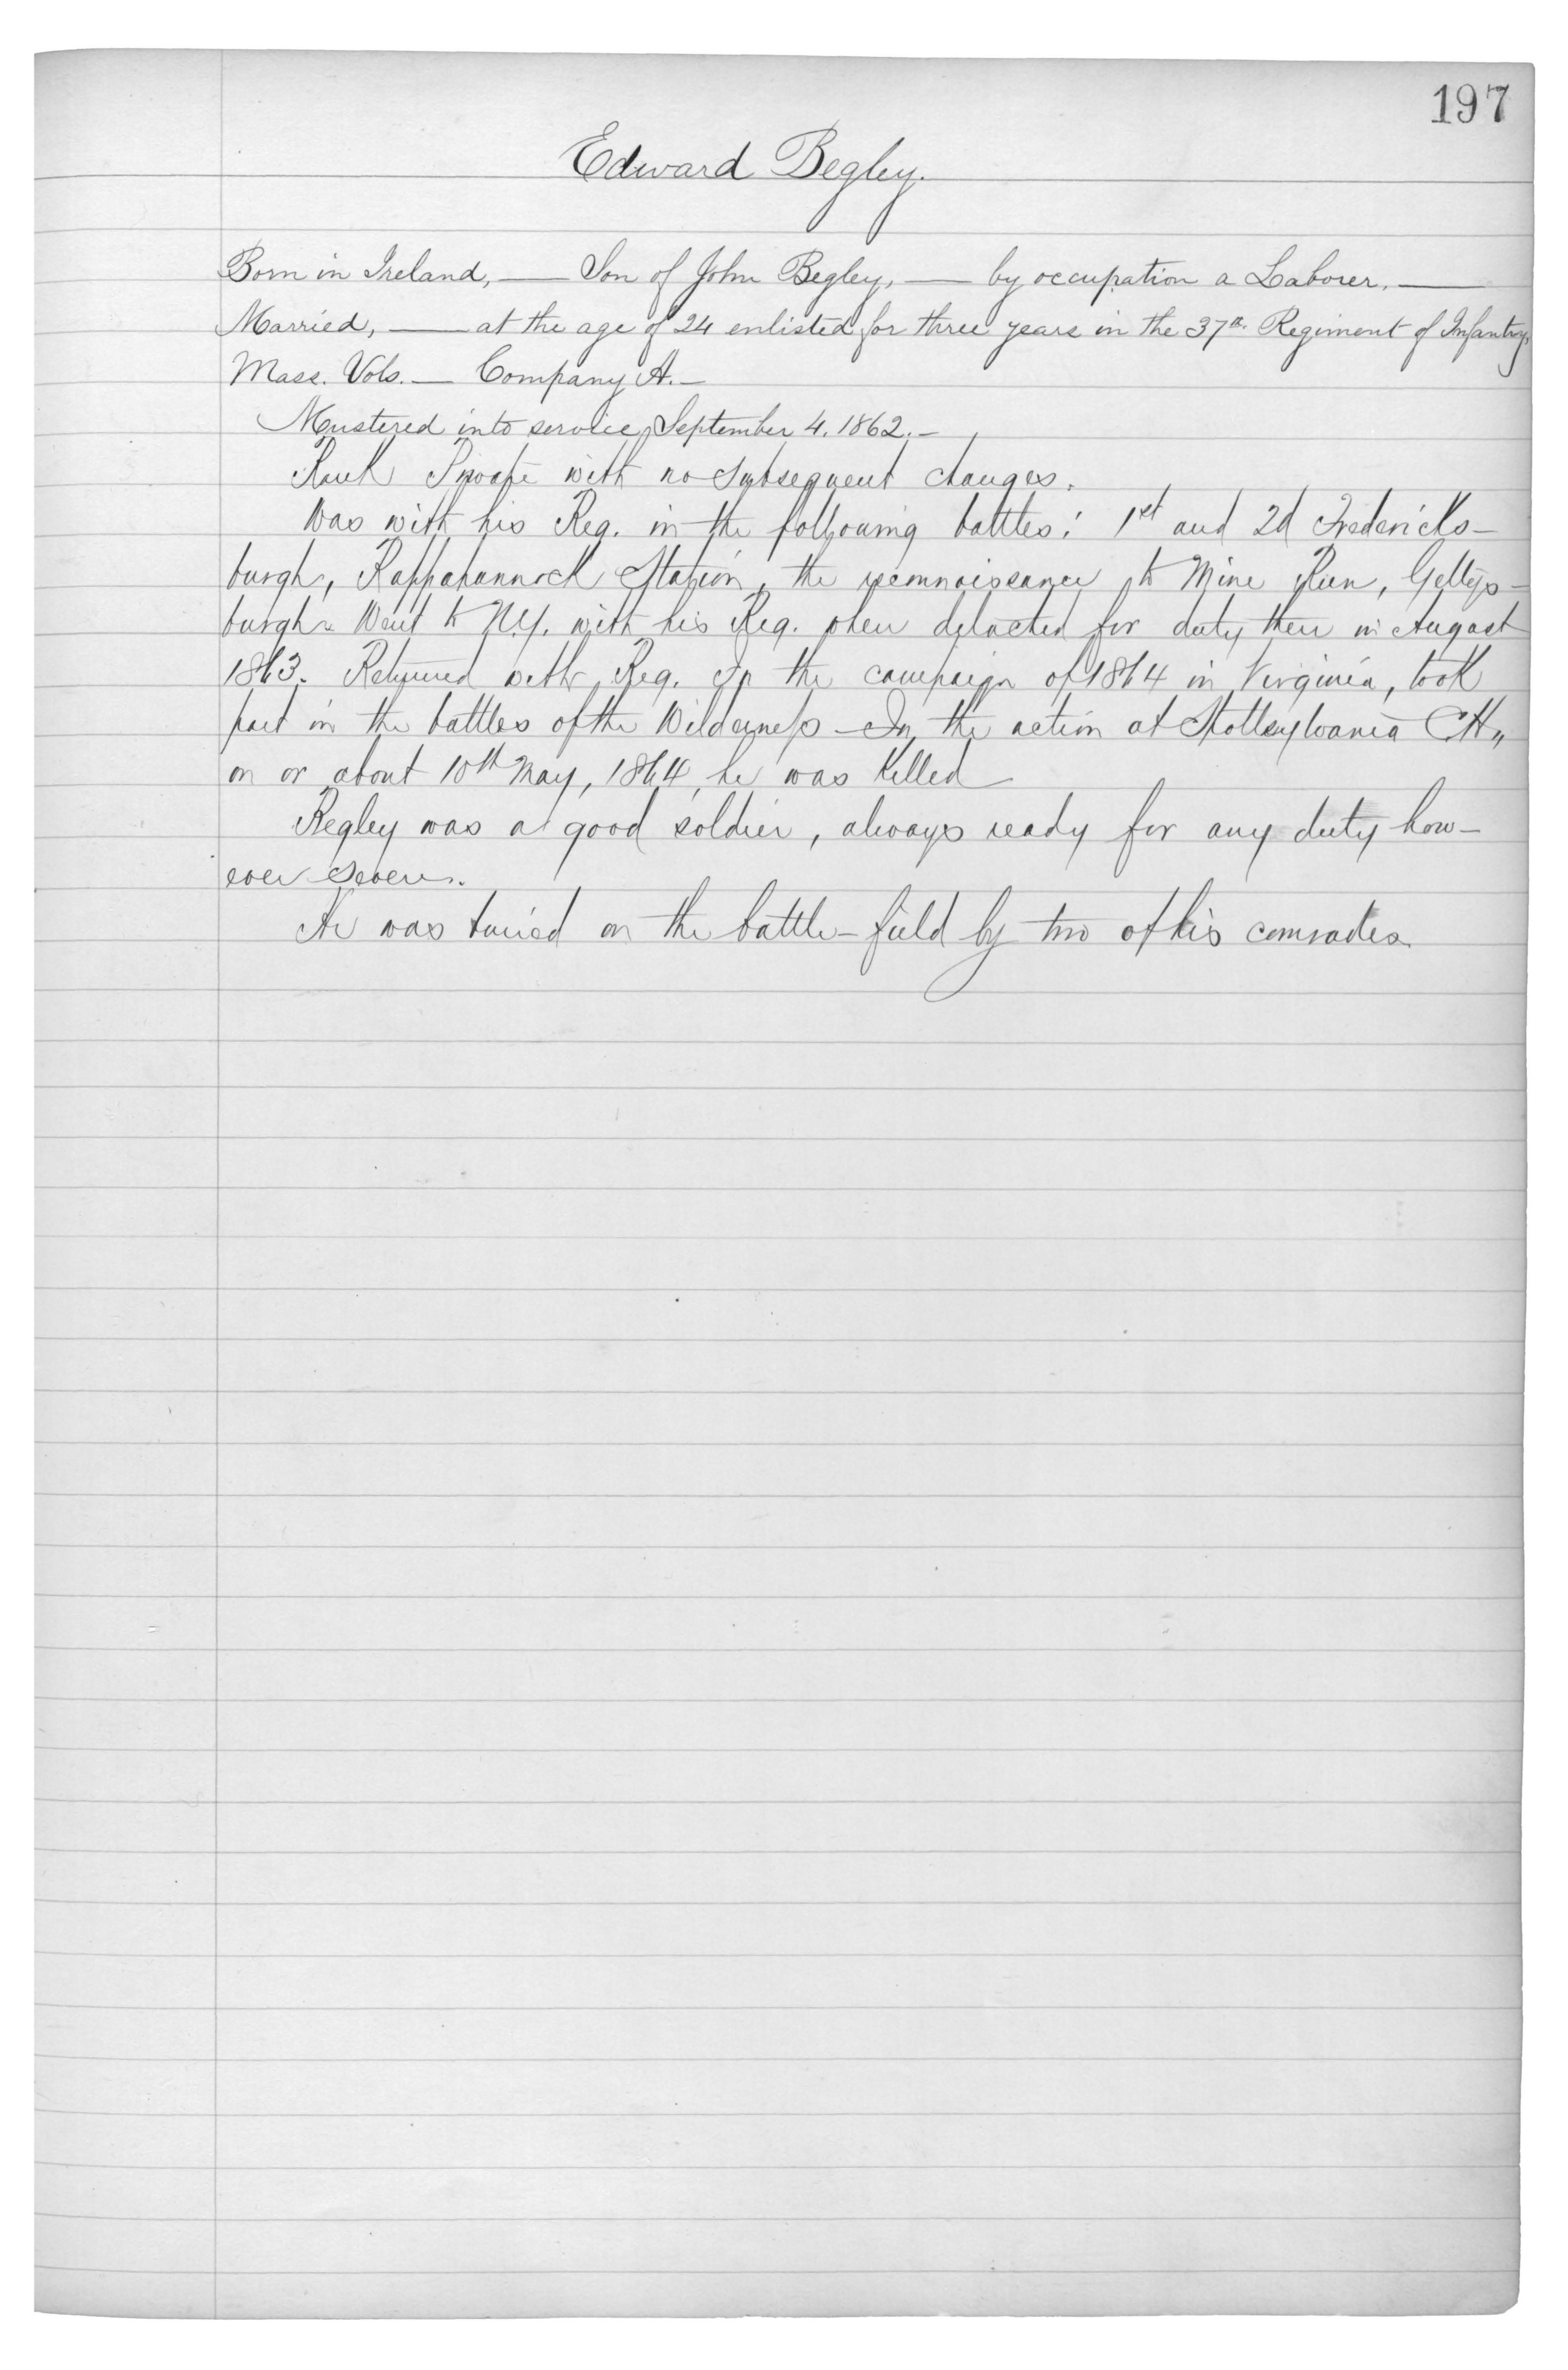 197
Edward Begley.
Born in Ireland, — Son of John Begley, — by occupation a Laborer. —
Married, — at the age of 24 enlisted for three years in the 37th. Regiment of Infantry,
Mass. Vols. — Company A. —
Mustered into service, September 4. 1862. —
Rank Private with no subsequent changes.
Was with his Reg. in the following battles: 1st and 2d Fredericks-
burgh, Rappahannock Station, the reconnaissance to Mine Run, Gettys-
burgh. Went to N.Y. with his Reg. when detached for duty there in August
1863. Returned with Reg. In the campaign of 1864 in Virginia, took
part in the battles of the Wilderness — In the action at Spottsylvania C.H.,
on or about 10th May, 1864, he was killed
Begley was a good soldier, always ready for any duty how-
ever severe.
He was buried on the battle-field by two of his comrades.